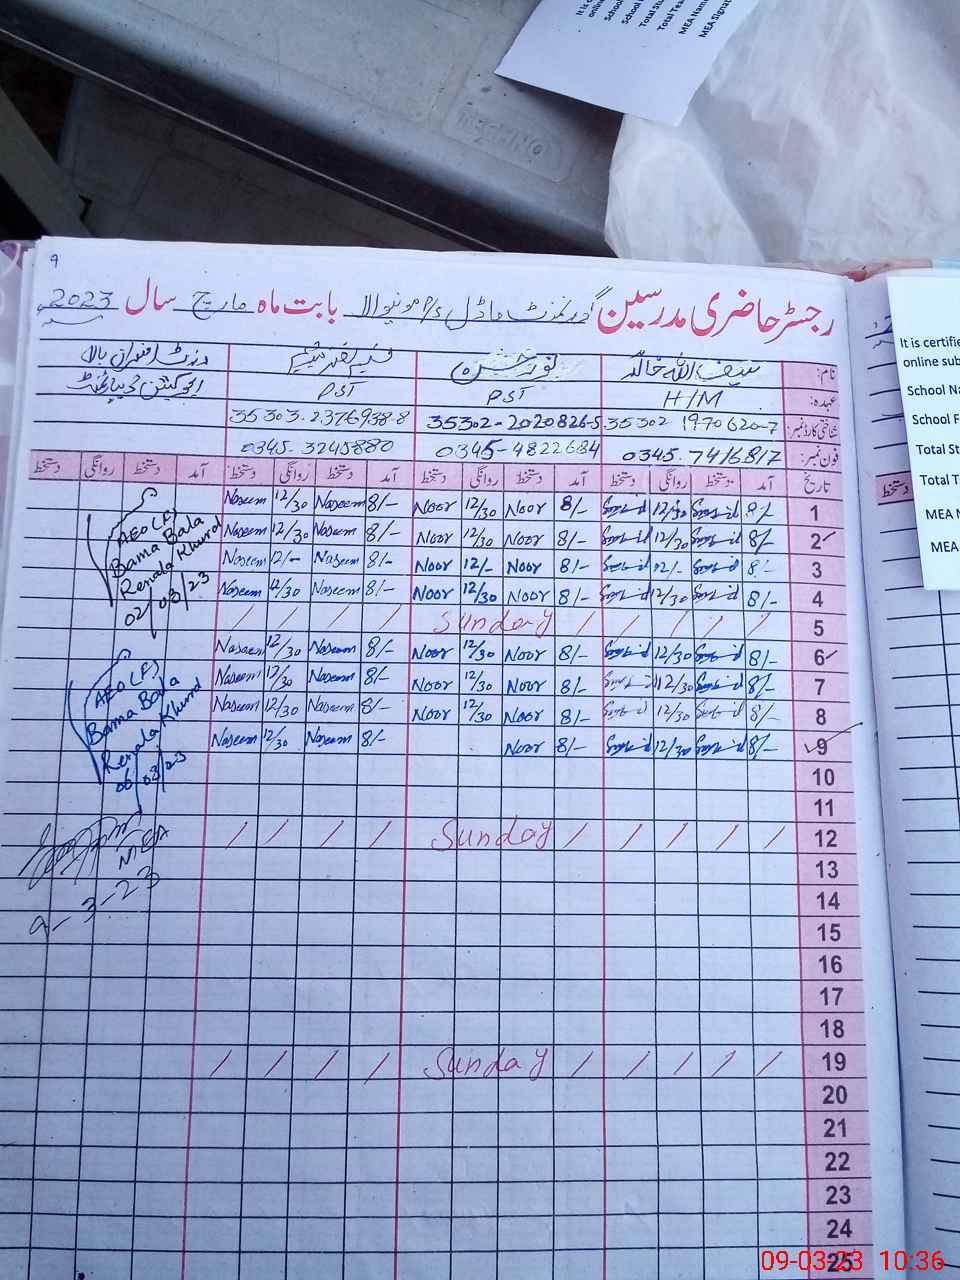 It is c
online
School
School F
Total Stu
Total Tea
MEA Nam
MEA Signat
TECHNO
9
رجسٹر حاضری مدرسین گورنمنٹ ماڈل P/s مونیوالا بابت ماہ مارچ سال 2023
نام: سیف اللہ خالد
عہدہ: H/M PST PST ایجوکیشن ڈیپارٹمنٹ
شناختی کارڈ نمبر: 35302 1970620-7 35302-2020826-5 35303-2376938-8
فون نمبر: 0345-7416817 0345-4822684 0345-3245880
تاریخ آمد دستخط روانگی دستخط آمد دستخط روانگی دستخط آمد دستخط روانگی دستخط آمد دستخط روانگی دستخط
1 8/- 12/30 8/- Noor 12/30 Noor 8/- Naseem 12/30 Naseem
2 8/- 12/30 8/- Noor 12/30 Noor 8/- Naseem 12/30 Naseem
3 8/- 12/- 8/- Noor 12/- Noor 8/- Naseem 12/- Naseem
4 8/- 12/30 8/- Noor 12/30 Noor 8/- Naseem 12/30 Naseem
5 Sunday
6 8/- 12/30 8/- Noor 12/30 Noor 8/- Naseem 12/30 Naseem
7 8/- 12/30 8/- Noor 12/30 Noor 8/- Naseem 12/30 Naseem
8 8/- 12/30 8/- Noor 12/30 Noor 8/- Naseem 12/30 Naseem
9 8/- 12/30 8/- Noor 8/- Naseem 12/30 Naseem
10
11
12 Sunday
13
14
15
16
17
18
19 Sunday
20
21
22
23
24
25
AEO (F)
Bama Bala
Renala Khurd
02/03/23
AEO (F)
Bama Bala
Renala Khurd
06/03/23
MEA
9-3-23
It is certifie
online sub
School Na
School F
Total St
Total T
MEA N
MEA
دستخط
09-03-23 10:36